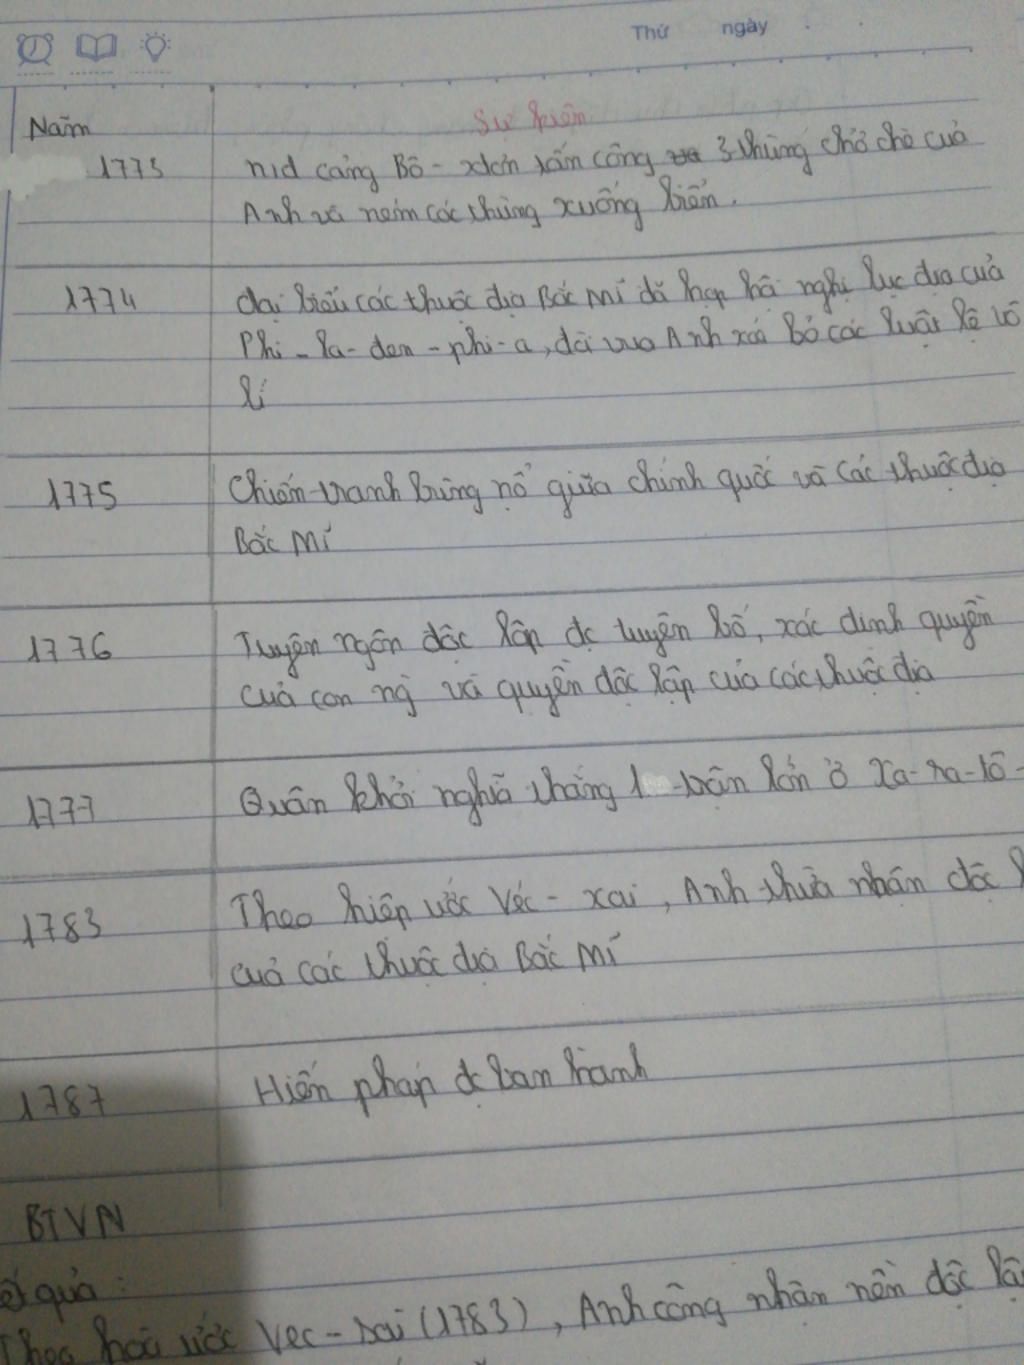 Thứ ngày
Năm Sự kiện
1773 nd cảng Bô-xtơn tấn công 3 thùng chở chè của
Anh và ném các thùng xuống biển.
1774 đại biểu các thuộc địa Bắc Mĩ đã họp hội nghị lục địa của
Phi-la-den-phi-a, đòi vua Anh xoá bỏ các luật lệ vô
lí
1775 Chiến tranh bùng nổ giữa chính quốc và các thuộc địa
Bắc Mĩ
1776 Tuyên ngôn độc lập đc tuyên bố, xác định quyền
của con ng và quyền độc lập của các thuộc địa
1777 Quân khởi nghĩa thắng 1 trận lớn ở Xa-ra-tô-
1783 Theo hiệp ước Véc-xai, Anh thừa nhận độc l
của các thuộc địa Bắc Mĩ
1787 Hiến pháp đc ban hành
BTVN
ết quả:
Theo hoà ước Vec-xai (1783), Anh công nhận nền độc lậ